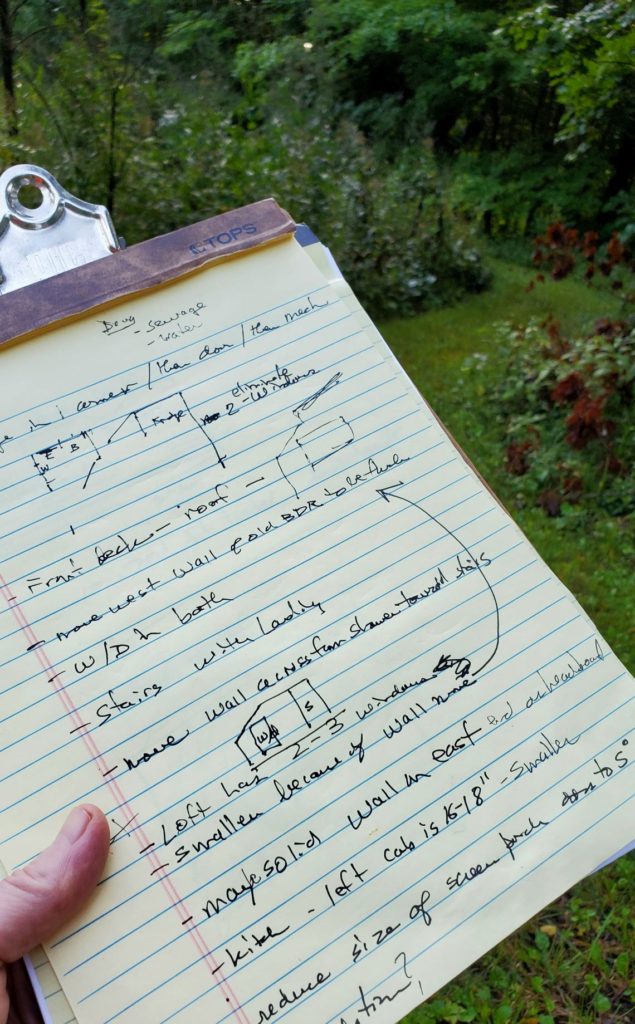 TOPS
Doug - sewage
- water
in 1 corner / then door / then mech
eliminate
2 - windows
Fridge
W
B
- Front deck - roof -
- move west wall of old BDR to
- W/D in bath
- Stairs with landing
- move wall across from shower toward stairs
W/D
S
- Loft has 2-3 windows
- smaller because of wall move
- maybe solid wall on east end or headboard
- kitch - left cab is 16-18" - smaller
reduce size of screen porch down to 5'
?